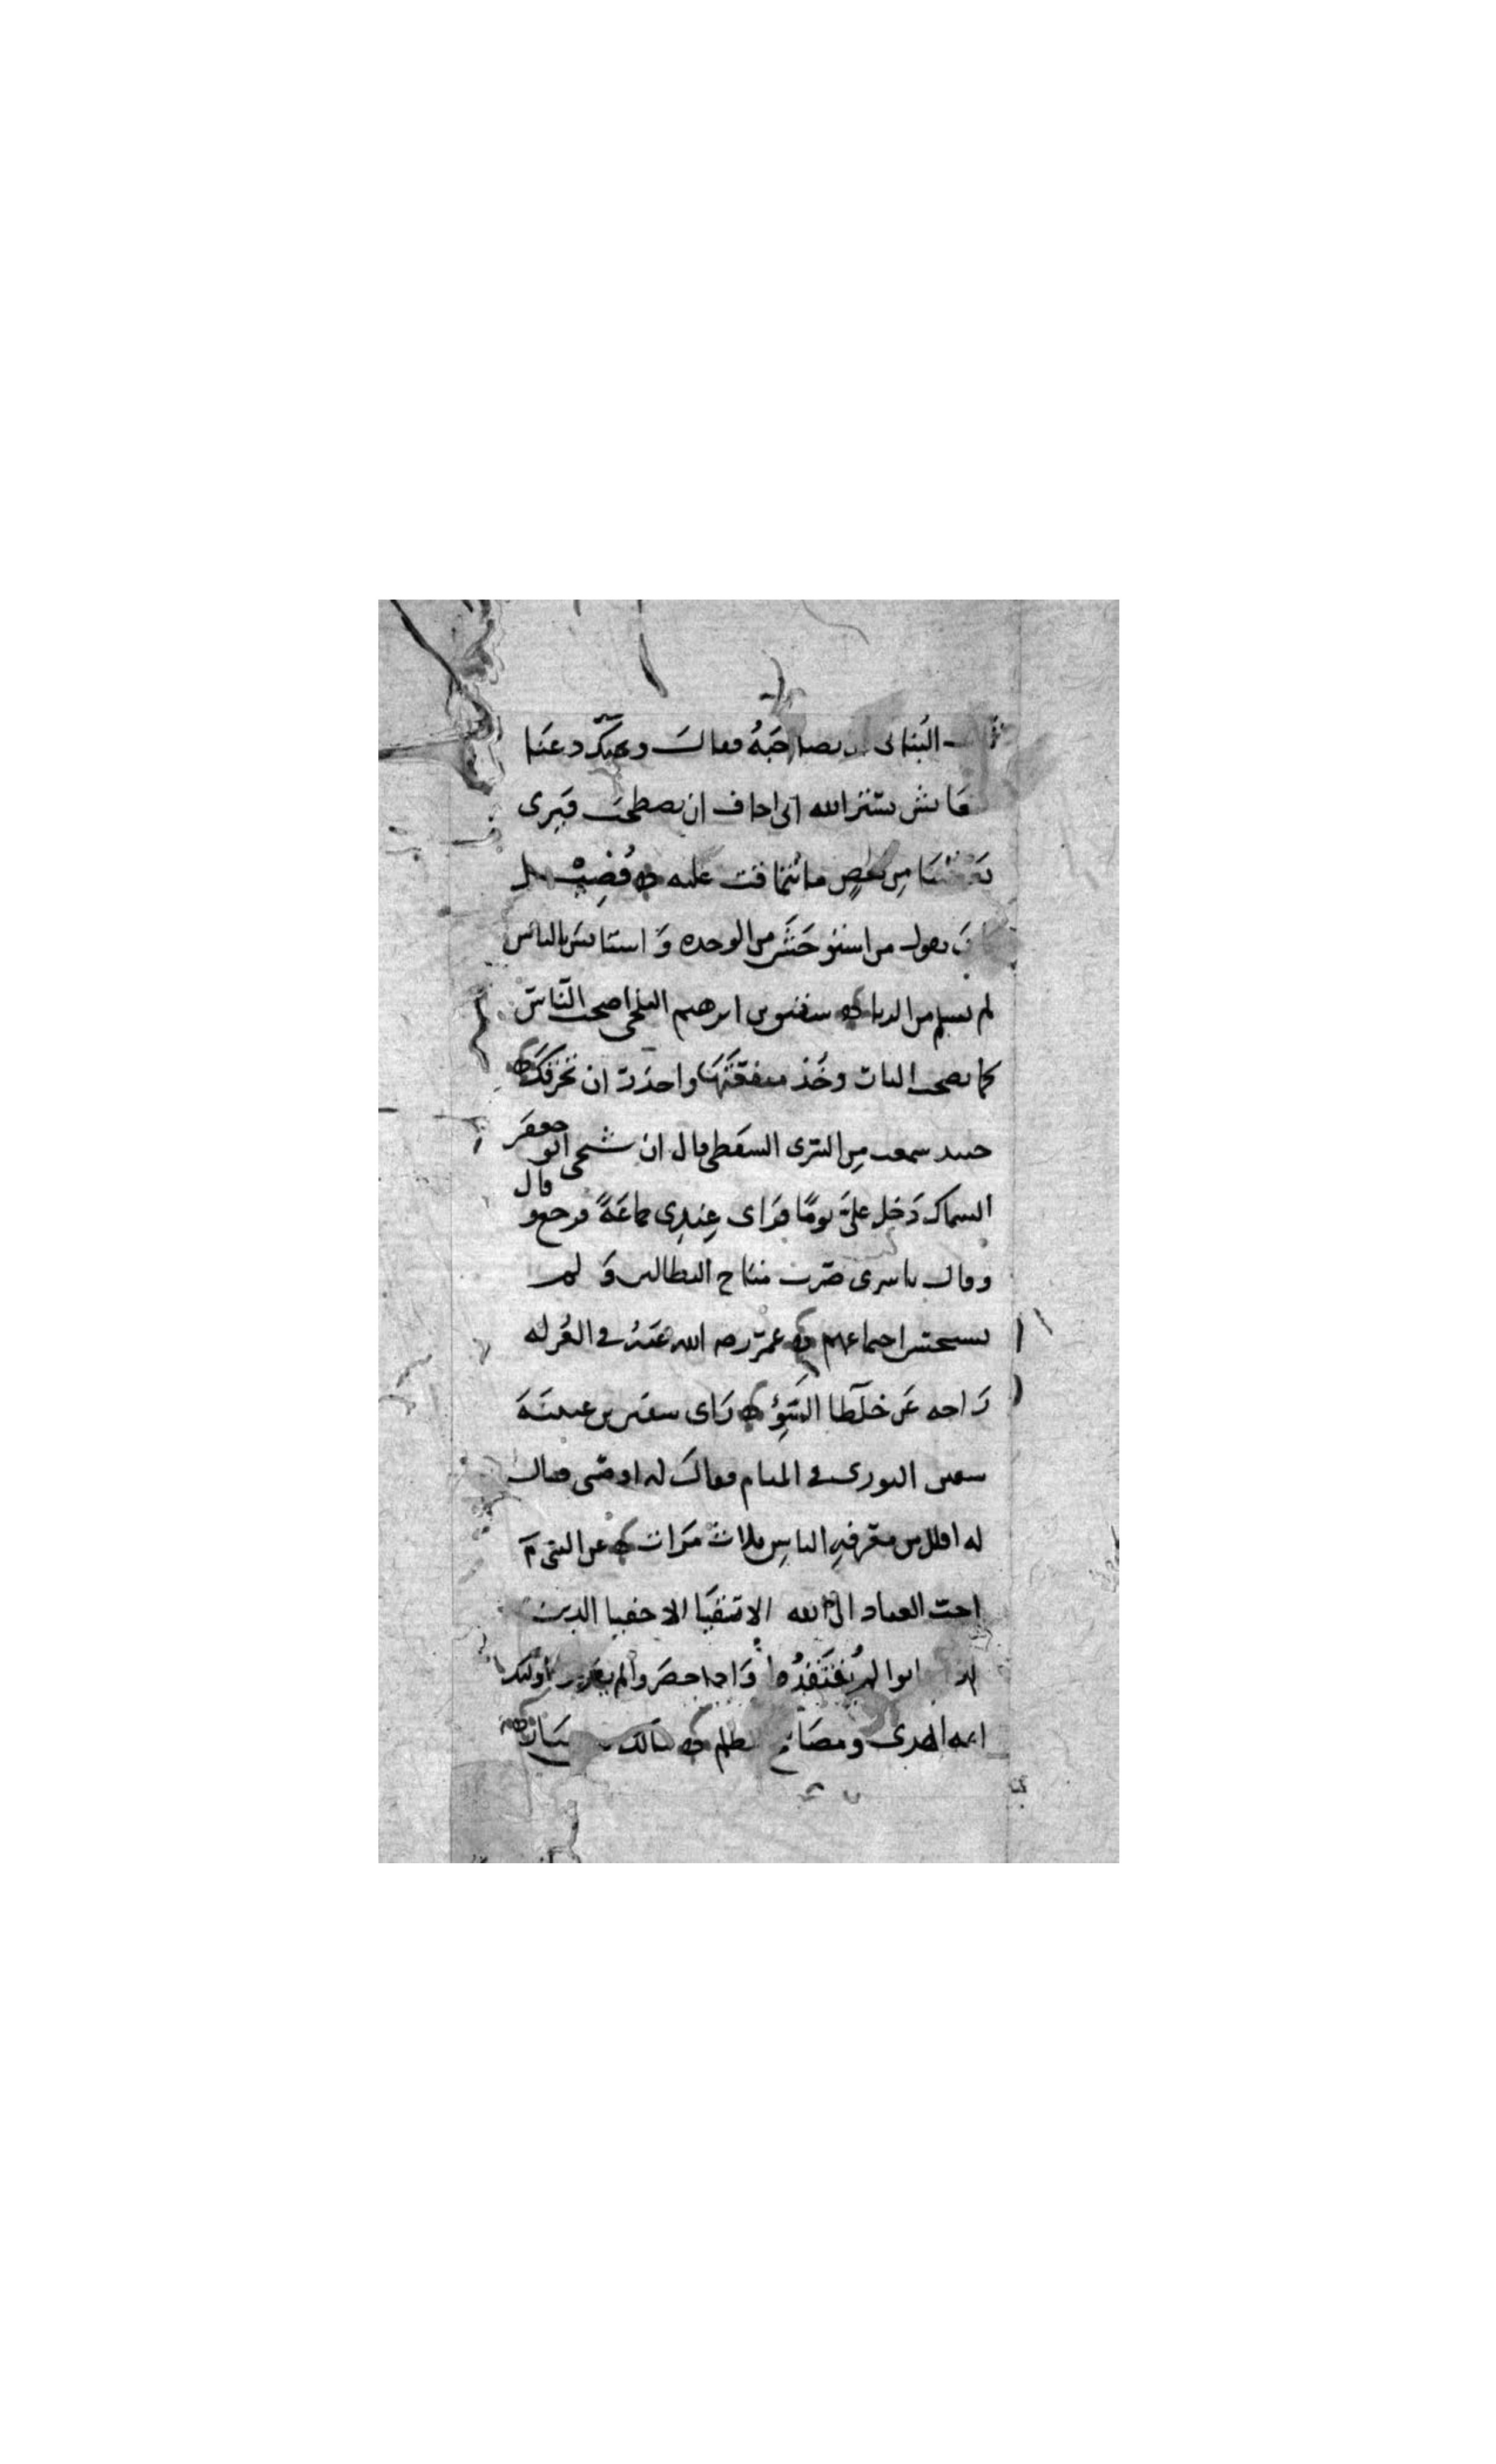 البناني يصاحبه فقال ويحك دعنا
نعايش بستر الله اني اخاف ان نصطحب فيرى
بعضنا من بعض ما نتماقت عليه فضيل
كان يقول من استوحش من الوحدة واستانس بالناس
لم يسلم من الريا شقيق بن ابرهيم البلخي اصحب الناس
كما تصحب النار وخذ منفعتها واحذر ان تحرقك
جنيد سمعت من السري السقطي قال ان شيخي ابو جعفر
السماك دخل علي يوما فراى عندي جماعة فرجع و قال
وقال يا سري صرت مناخ البطالين ولم
يستحسن اجتماعهم عمر رضه الله عنه في العزلة
راحة عن خلطا السوء راى سفين بن عيينة
سفين الثوري في المنام فقال له اوصني فقال
له اقلل من معرفة الناس ثلاث مرات عن النبي م
احب العباد الى الله الاتقيا الاخفيا الذين
اذا غابوا لم يفتقدوا واذا حضروا لم يعرفوا اولئك
ائمة الهدى ومصابيح الظلم مالك دينار